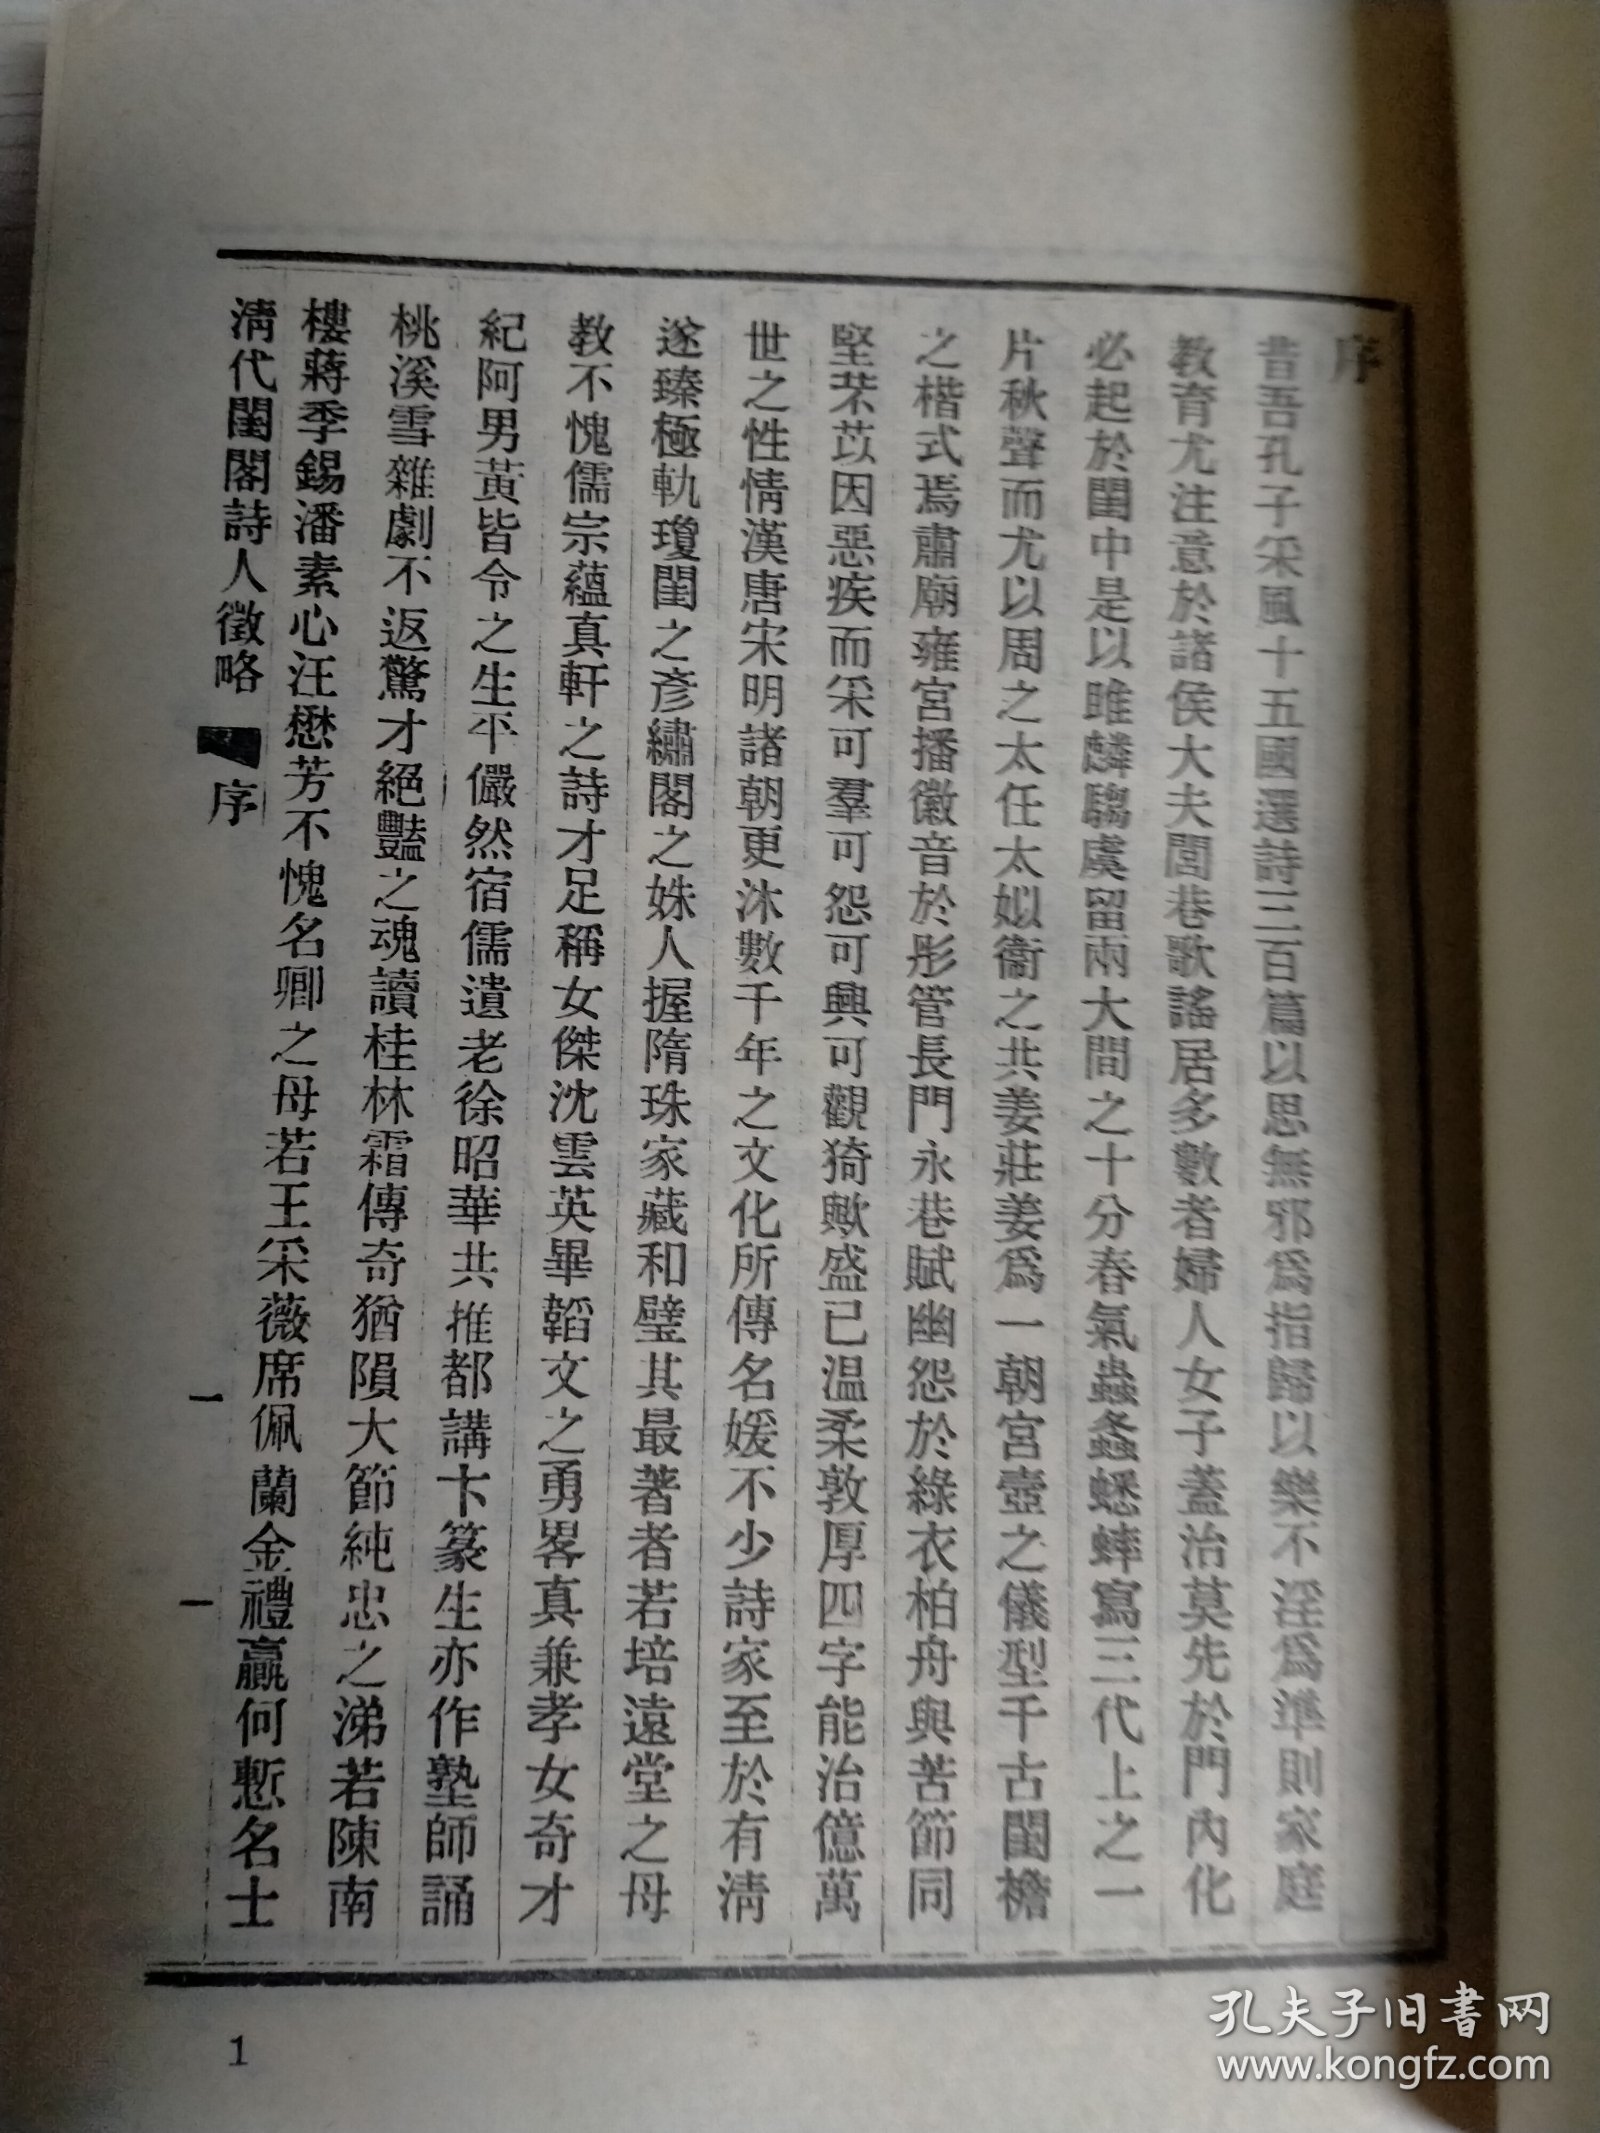 序
昔吾孔子采風十五國選詩三百篇以思無邪爲指歸以樂不淫爲準則家庭
教育尤注意於諸侯大夫閭巷歌謠居多數者婦人女子蓋治莫先於門內化
必起於閨中是以雎麟騶虞留兩大間之十分春氣蟲螽蟋蟀寫三代上之一
片秋聲而尤以周之太任太姒衞之共姜莊姜爲一朝宮壼之儀型千古閨襜
之楷式焉肅廟雍宮播徽音於彤管長門永巷賦幽怨於綠衣柏舟與苦節同
堅芣苡因惡疾而采可羣可怨可興可觀猗歟盛已温柔敦厚四字能治億萬
世之性情漢唐宋明諸朝更沐數千年之文化所傳名媛不少詩家至於有清
遂臻極軌瓊閨之彥繡閣之姝人握隋珠家藏和璧其最著者若培遠堂之母
教不愧儒宗蘊真軒之詩才足稱女傑沈雲英畢韜文之勇畧真兼孝女奇才
紀阿男黃皆令之生平儼然宿儒遺老徐昭華共推都講卞篆生亦作塾師誦
桃溪雪雜劇不返驚才絕豔之魂讀桂林霜傳奇猶隕大節純忠之涕若陳南
樓蔣季錫潘素心汪懋芳不愧名卿之母若王采薇席佩蘭金禮嬴何慙名士
清代閨閣詩人徵略 序 一 一
1
孔夫子旧書网
www.kongfz.com